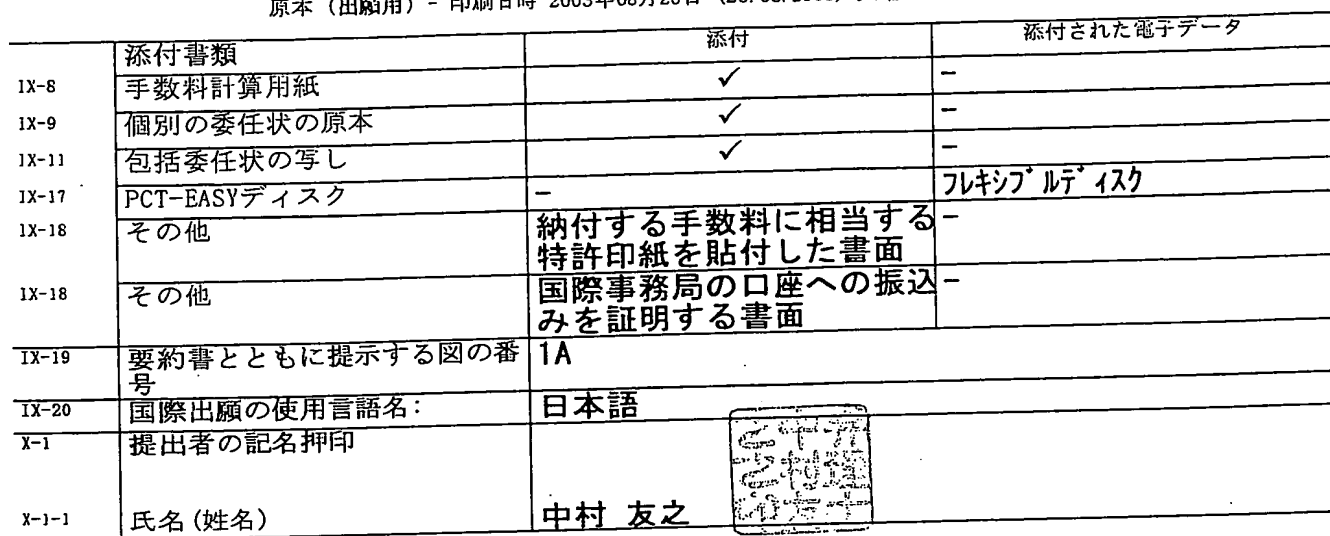 添付書類 添付 添付された電子データ
IX-8 手数料計算用紙 ✓ -
IX-9 個別の委任状の原本 ✓ -
IX-11 包括委任状の写し ✓ -
IX-17 PCT-EASYディスク - フレキシブルディスク
IX-18 その他 納付する手数料に相当する -
特許印紙を貼付した書面
IX-18 その他 国際事務局の口座への振込 -
みを証明する書面
IX-19 要約書とともに提示する図の番 1A
号
IX-20 国際出願の使用言語名: 日本語
X-1 提出者の記名押印
X-1-1 氏名(姓名) 中村 友之